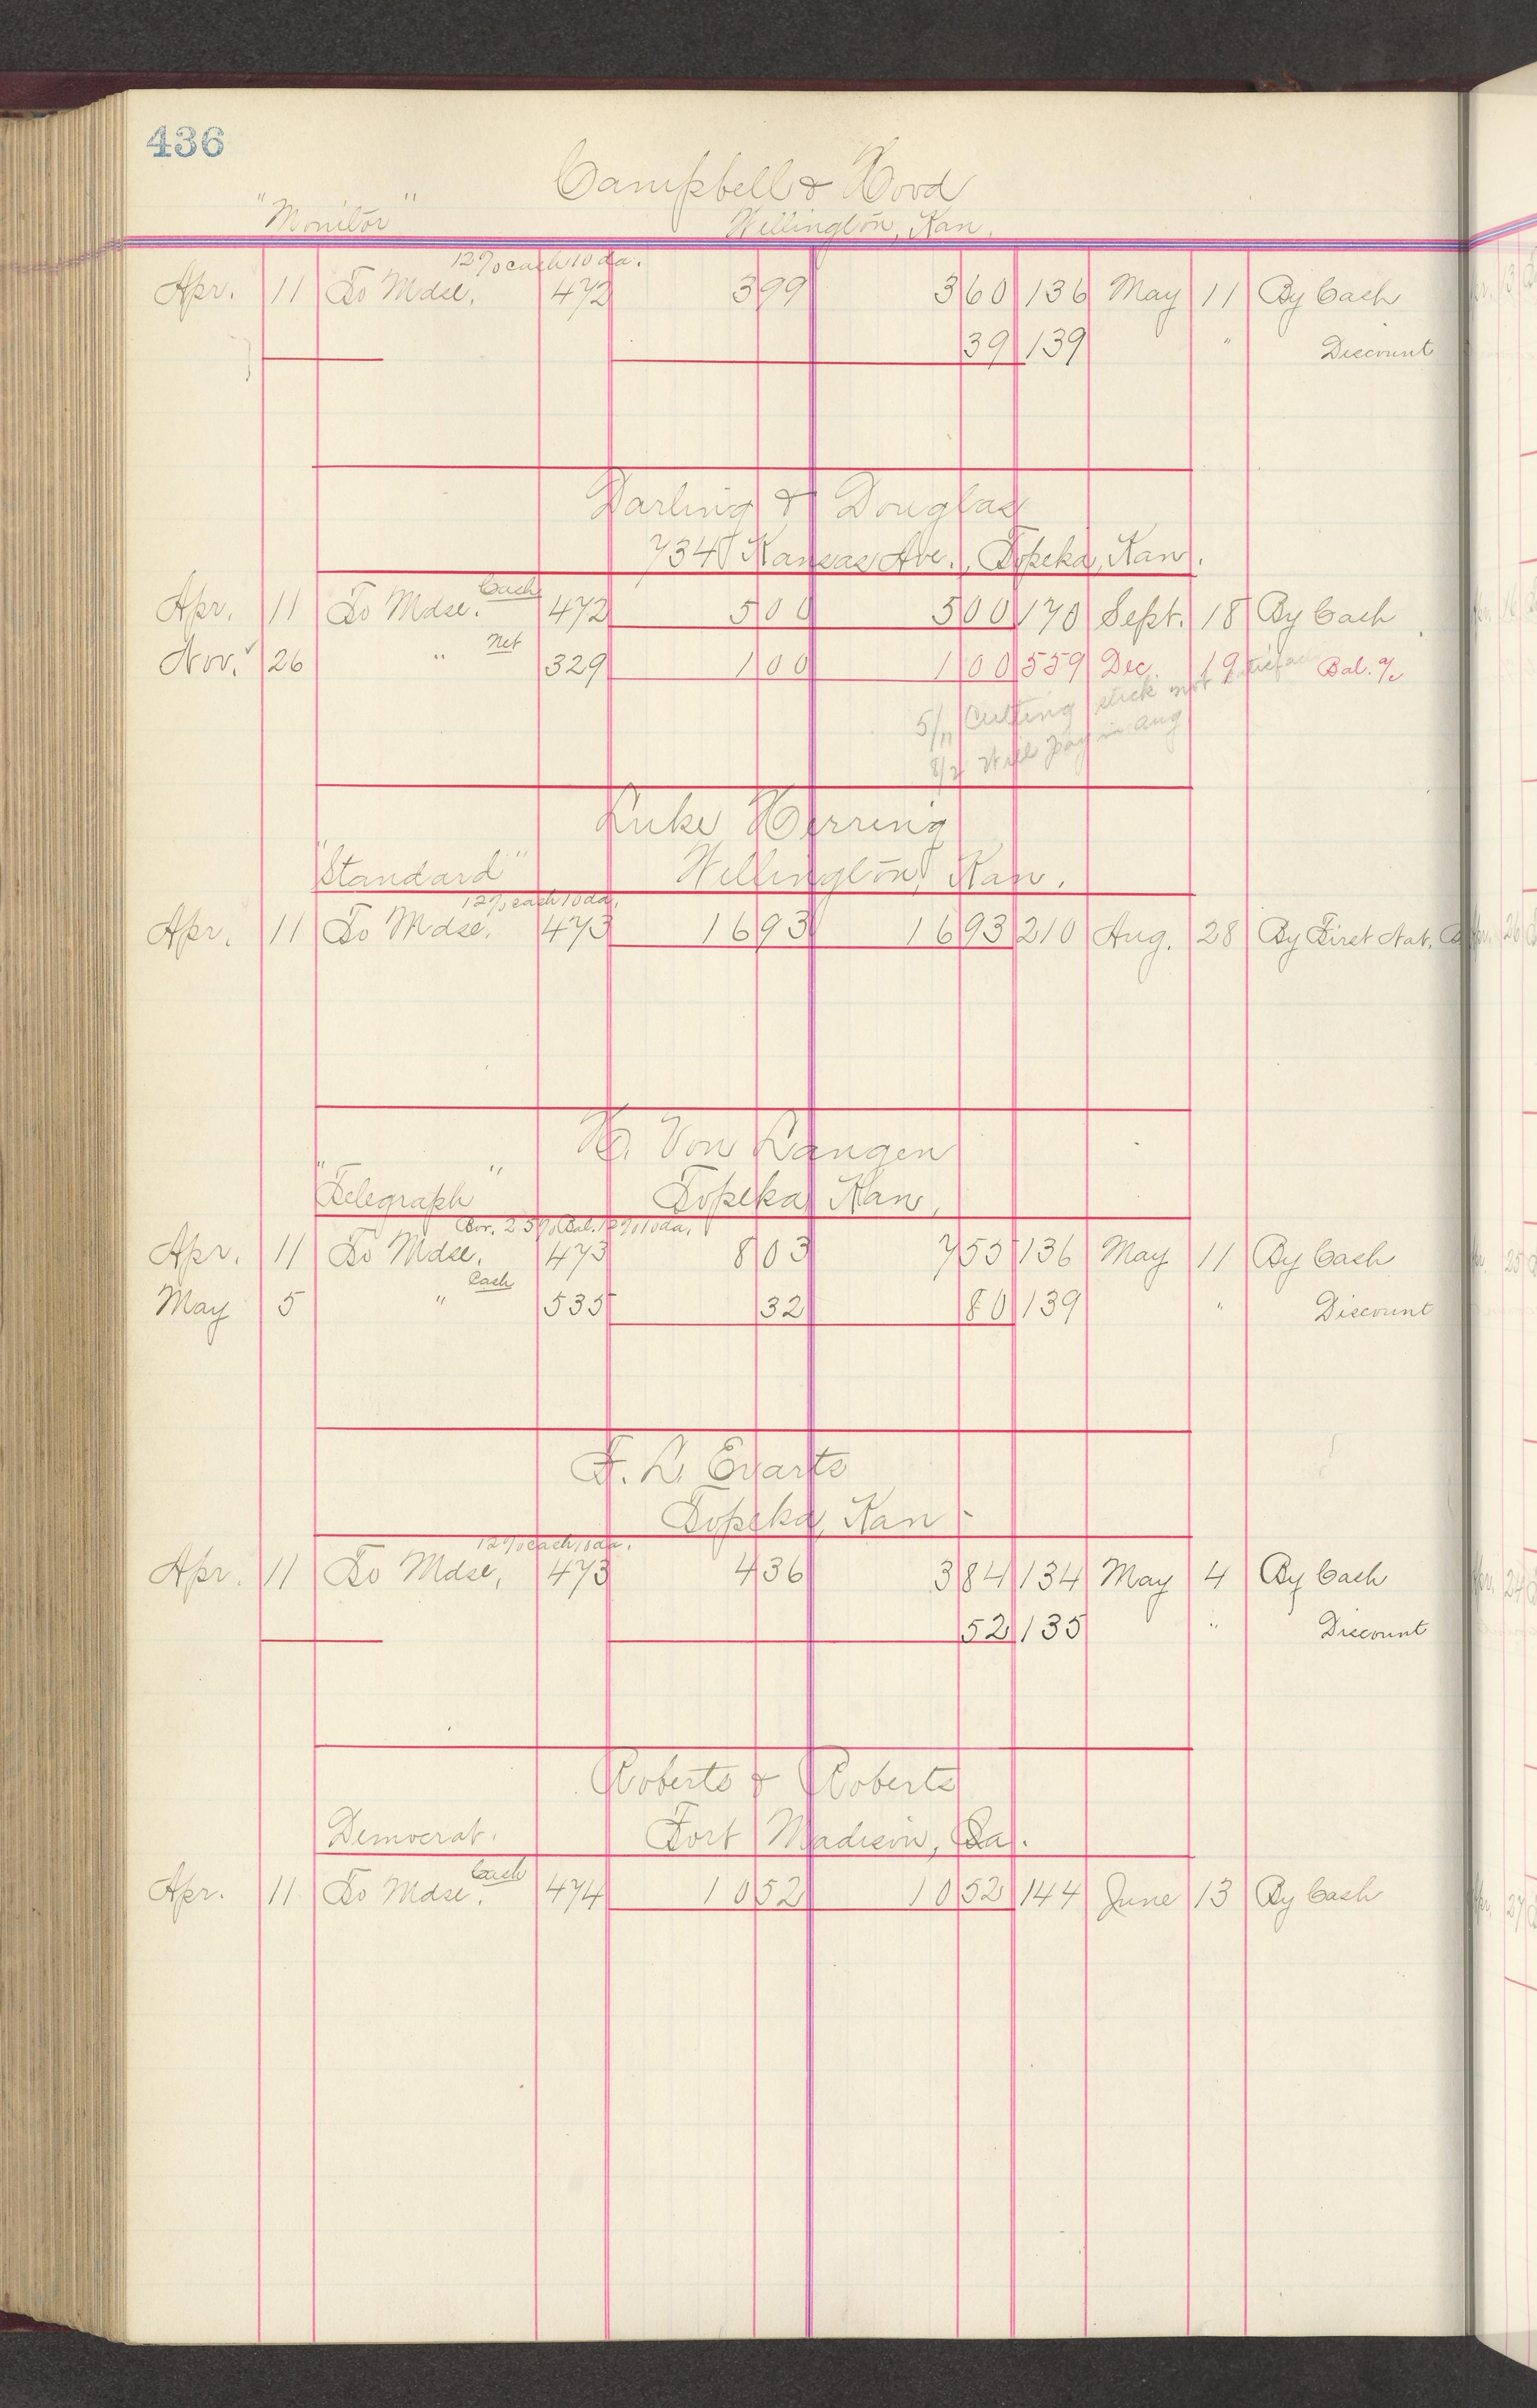 436
Campbell & Hood
"Monitor" Wellington, Kan.
12% cash 10 da.
Apr. 11 To Mdse. 472 3 99 3 60 136 May 11 By Cash
39 139 " Discount
Darling & Douglas
734 Kansas Ave., Topeka, Kan.
Cash
Apr. 11 To Mdse. 472 5 00 5 00 170 Sept. 18 By Cash
Net
Nov. 26 " 329 1 00 1 00 559 Dec. 19 Bal. a/c
5/11 Cutting stick not
8/7 Will pay in Aug
Luke Herring
"Standard" Wellington, Kan.
12% cash 10 da.
Apr. 11 To Mdse. 473 16 93 16 93 210 Aug. 28 By First Nat.
H. Von Langen
"Telegraph" Topeka, Kan,
Bor. 25% Bal. 12% 10 da.
Apr. 11 To Mdse. 473 8 03 7 55 136 May 11 By Cash
Cash
May 5 " 535 32 80 139 " Discount
F. L. Evarts
Topeka, Kan -
12% cash 10 da.
Apr. 11 To Mdse, 473 4 36 3 84 134 May 4 By Cash
52 135 " Discount
Roberts & Roberts
Democrat. Fort Madison, Ia.
Cash
Apr. 11 To Mdse. 474 10 52 10 52 144 June 13 By Cash